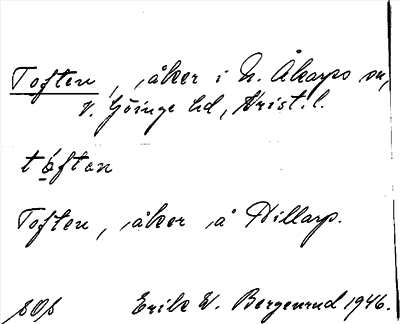 Toften, åker i N. Åkarps sn,
V. Göinge hd, Krist. l.
tóftan
Toften, åker å Hillarp.
Erik W. Bergenrud 1946.